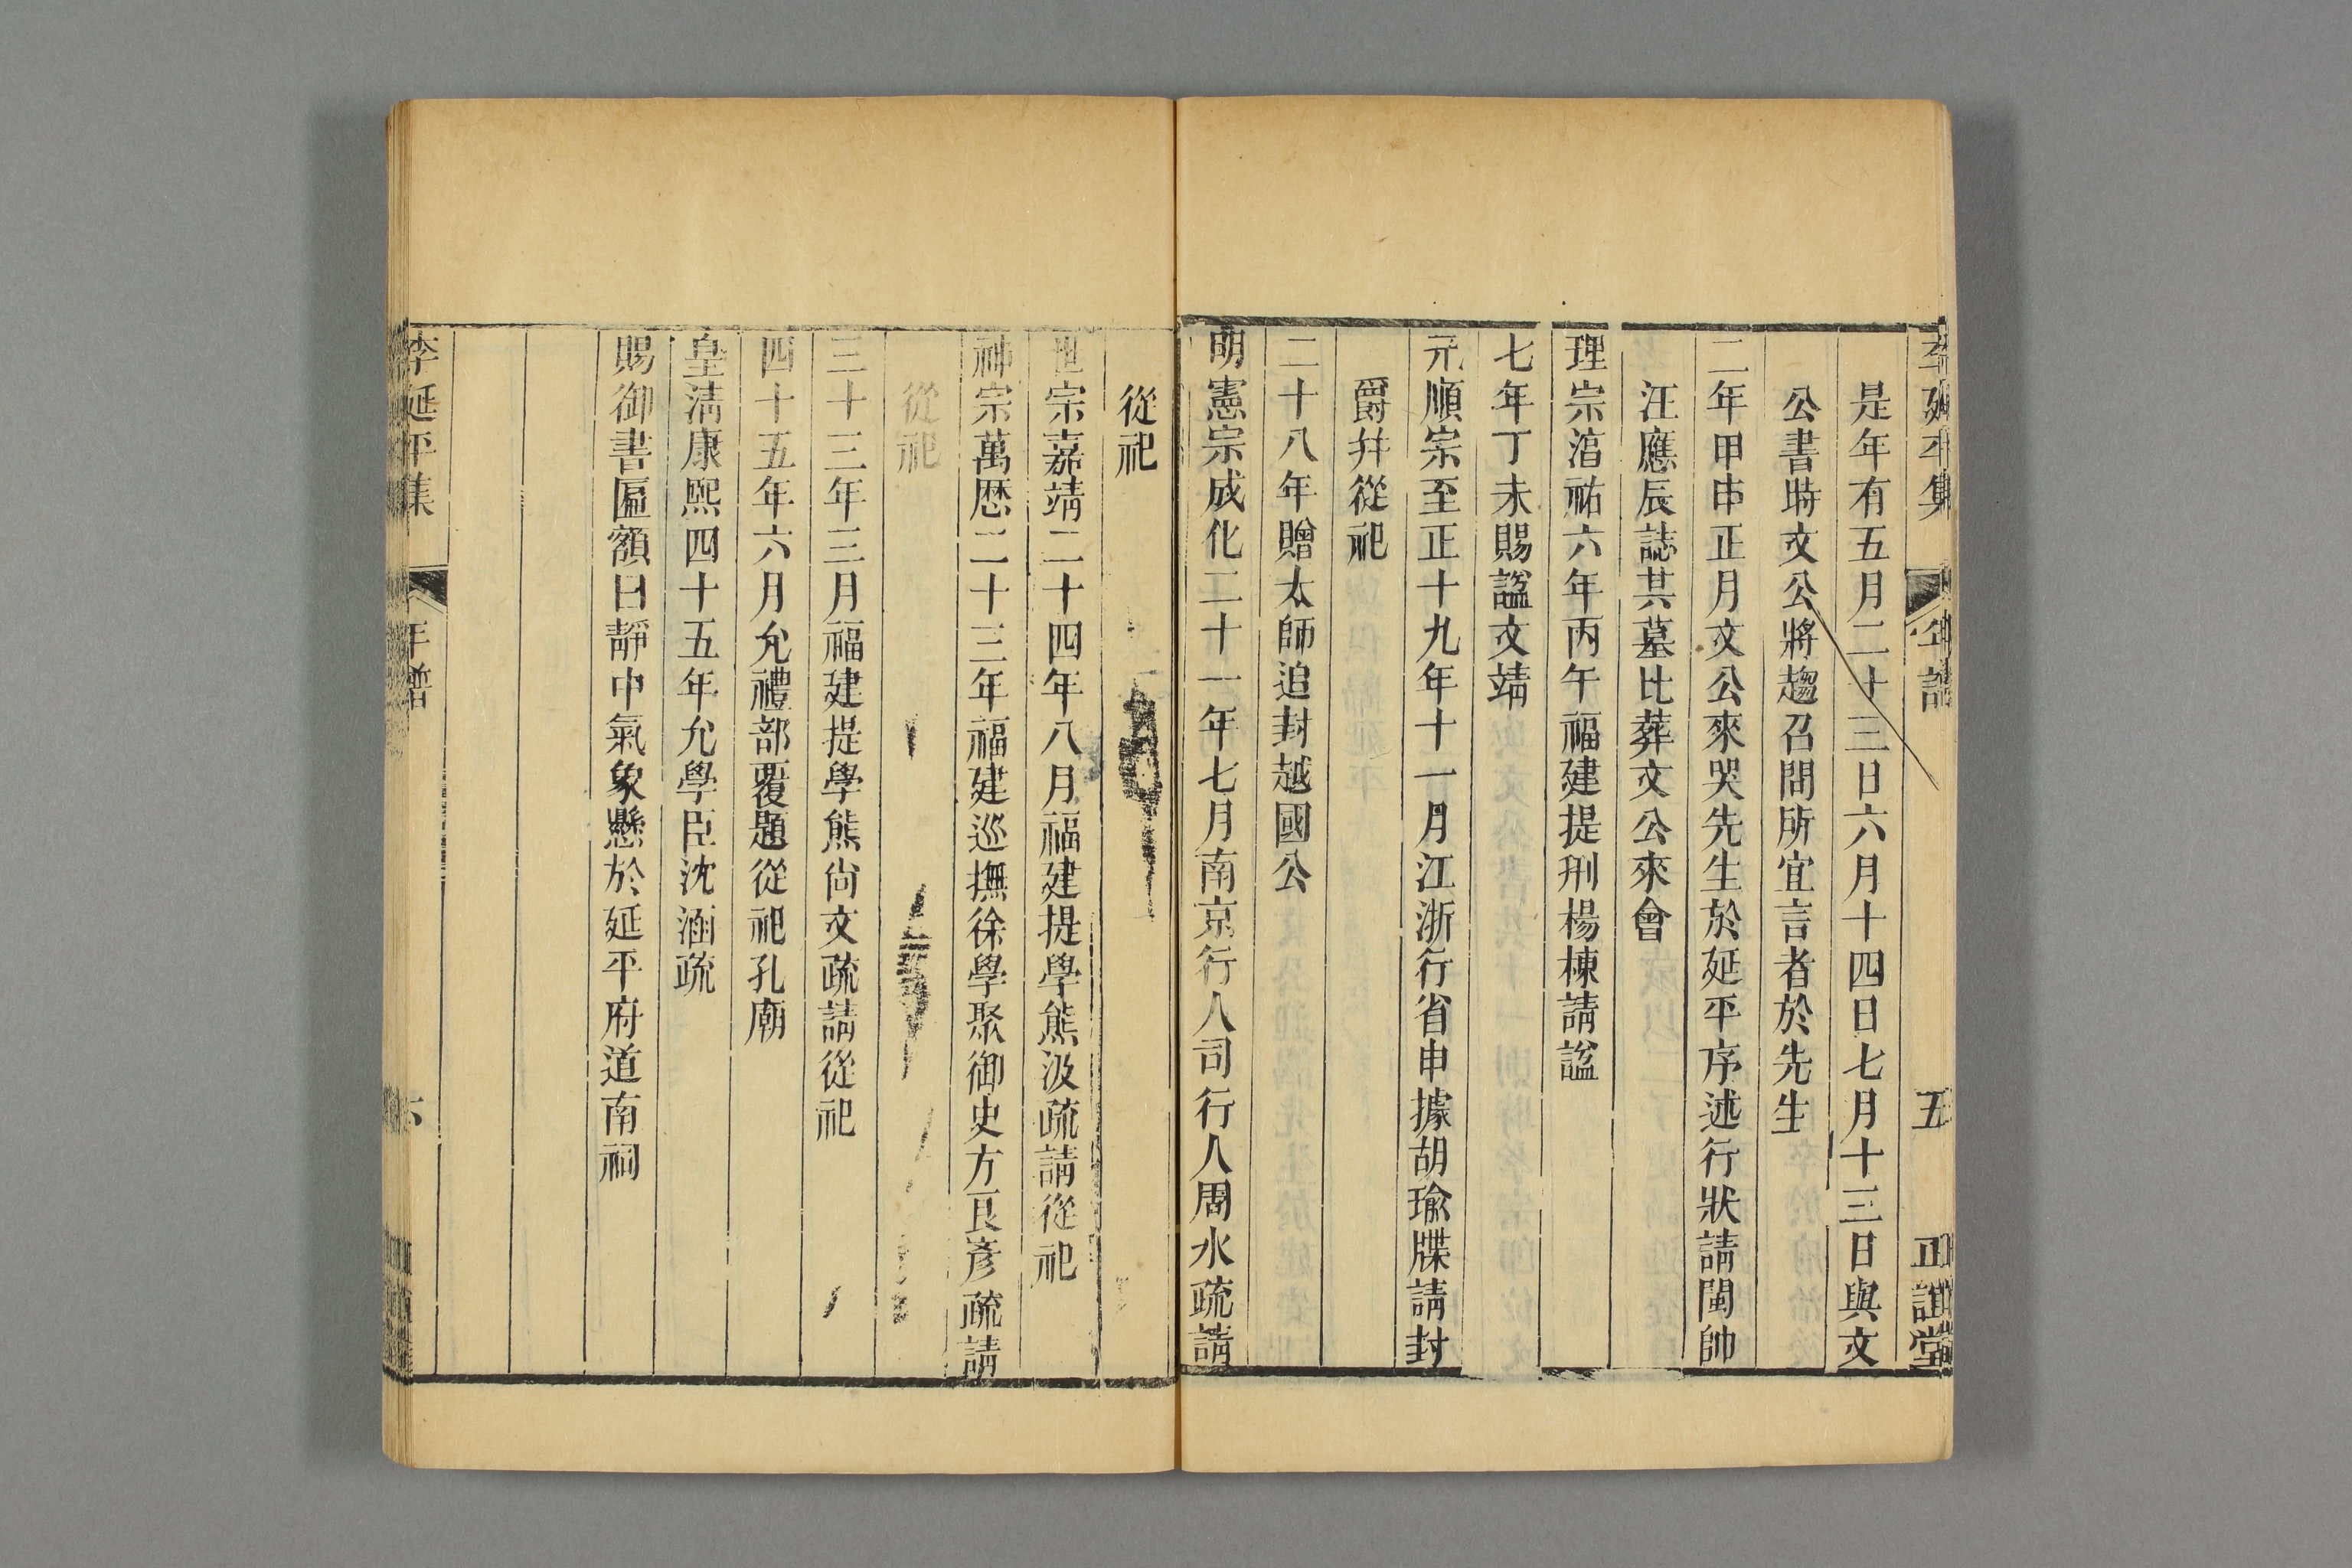 李延平集 年譜 五 正誼堂
是年有五月二十三日六月十四日七月十三日與文
公書時文公將趨召問所宜言者於先生
二年甲申正月文公來哭先生於延平序述行狀請閩帥
汪應辰誌其墓比葬文公來會
理宗淳祐六年丙午福建提刑楊棟請諡
七年丁未賜諡文靖
元順宗至正十九年十一月江浙行省申據胡瑜牒請封
爵幷從祀
二十八年贈太師追封越國公
明憲宗成化二十一年七月南京行人司行人周木疏請
從祀
世宗嘉靖二十四年八月福建提學熊汲疏請從祀
神宗萬歷二十三年福建巡撫徐學聚御史方艮彥疏請
從祀
三十三年三月福建提學熊尙文疏請從祀
四十五年六月允禮部覆題從祀孔廟
皇淸康熙四十五年允學臣沈涵疏
賜御書匾額曰靜中氣象懸於延平府道南祠
李延平集 年譜